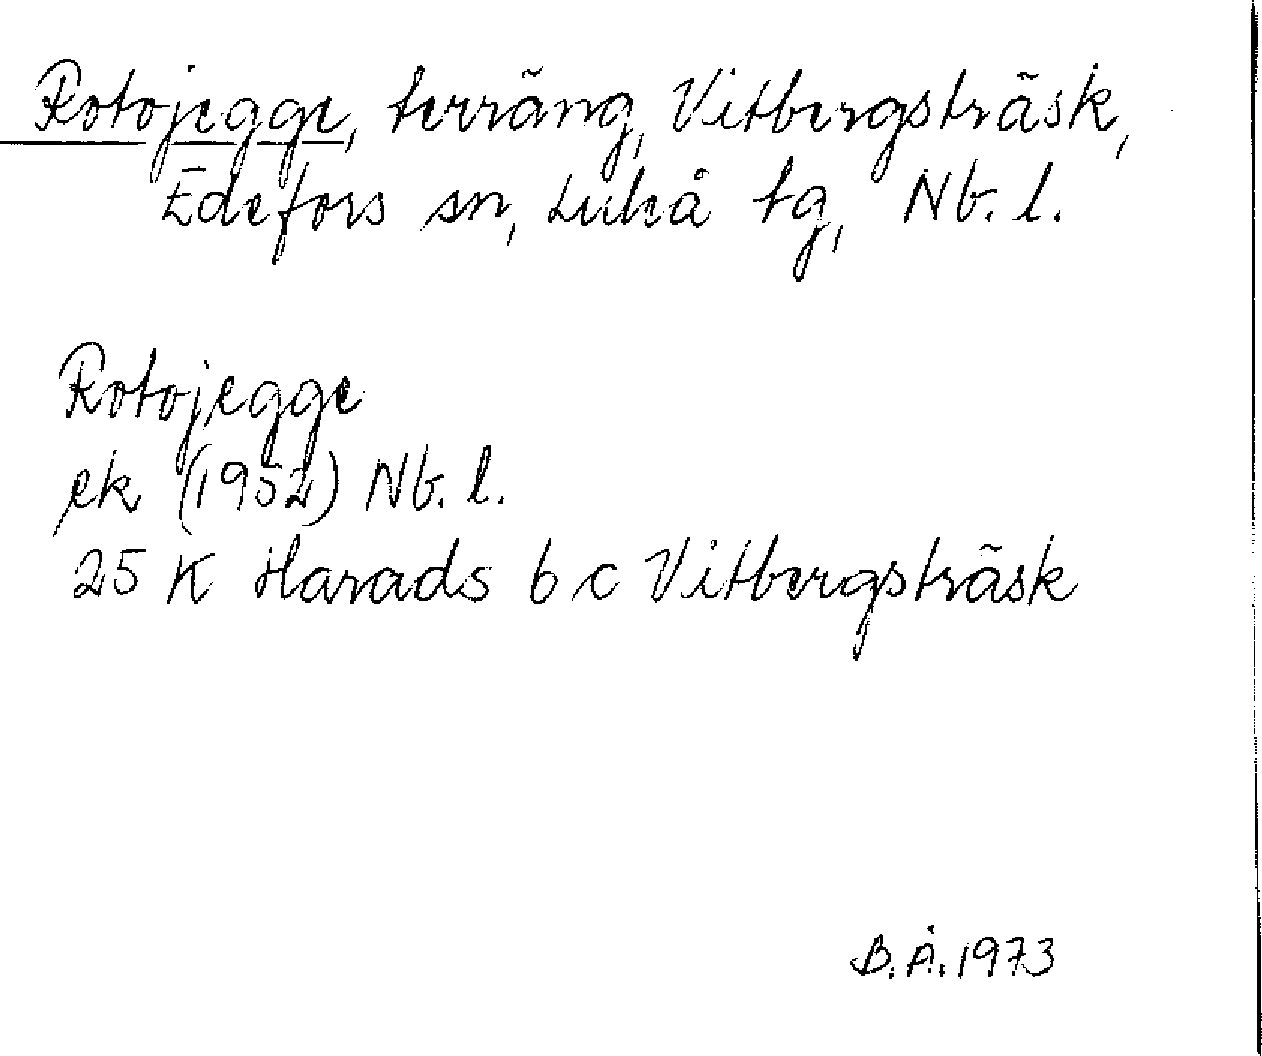 Rotojegge, terräng, Vitbergsträsk,
Edefors sn, Luleå tg, Nb. l.
Rotojegge
ek (1952) Nb. l.
25 K Harads 6 c Vitbergsträsk
B. Å. 1973